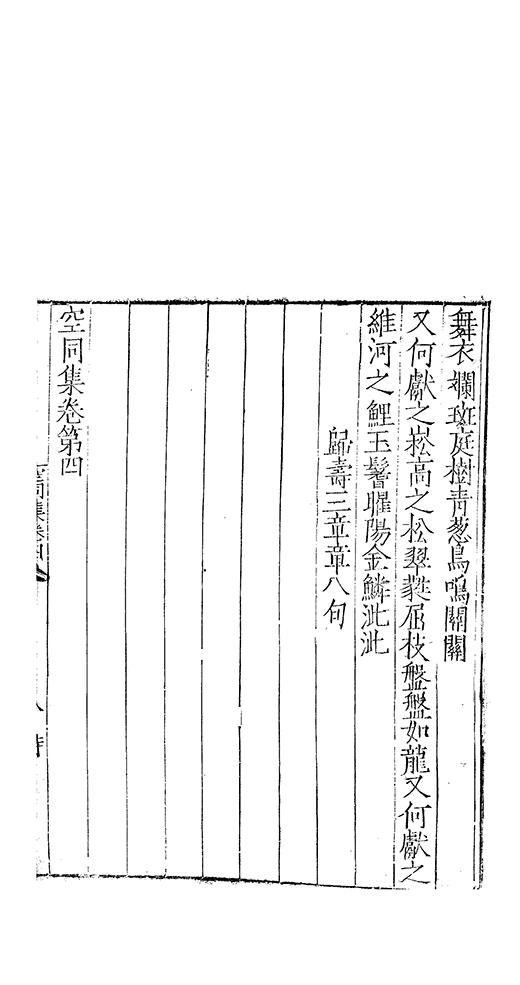 舞衣斕斑庭樹青葱鳥鳴關關
又何獻之崧高之松翠蕤屈枝盤盤如龍又何獻之
維河之鯉玉鬐曜陽金鱗泚泚
歸壽三章章八句
空同集卷第四
空同集卷四
八